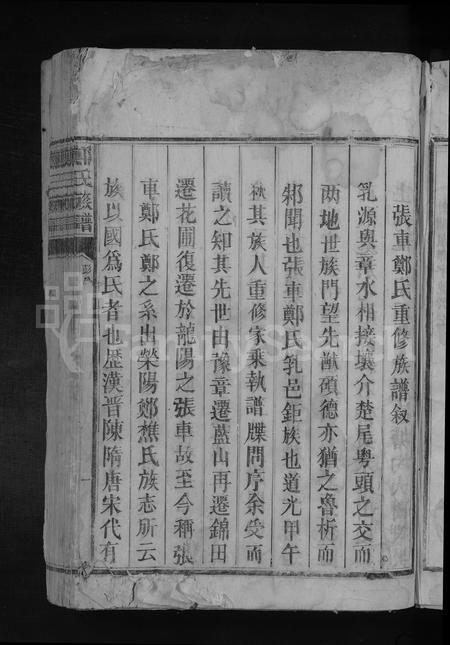 張車鄭氏重修族譜叙
乳源與章水相接壤介楚尾粵頭之交而
两地世族門望先猷碩德亦猶之魯析而
邾聞也張車鄭氏乳邑鉅族也道光甲午
秋其族人重修家乘執譜牒問序余受而
讀之知其先世由豫章遷藍山再遷錦田
遷花圃復遷於龍陽之張車故至今稱張
車鄭氏鄭之系出滎陽鄭樵氏族志所云
族以國爲氏者也歷漢晋陳隋唐宋代有
鄭氏族譜
一